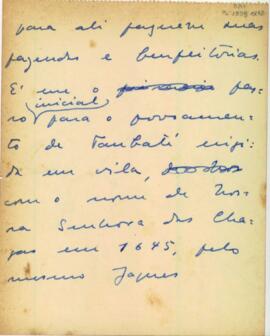 para ali fazerem suas
fazendas e benfeitorias.
É em o primeiro pas-
inicial
so para o povoamen-
to de Taubaté erigi-
da em vila,
com o nome de Nos-
sa Senhora das Cha-
gas em 1645, pelo
mesmo Jaques